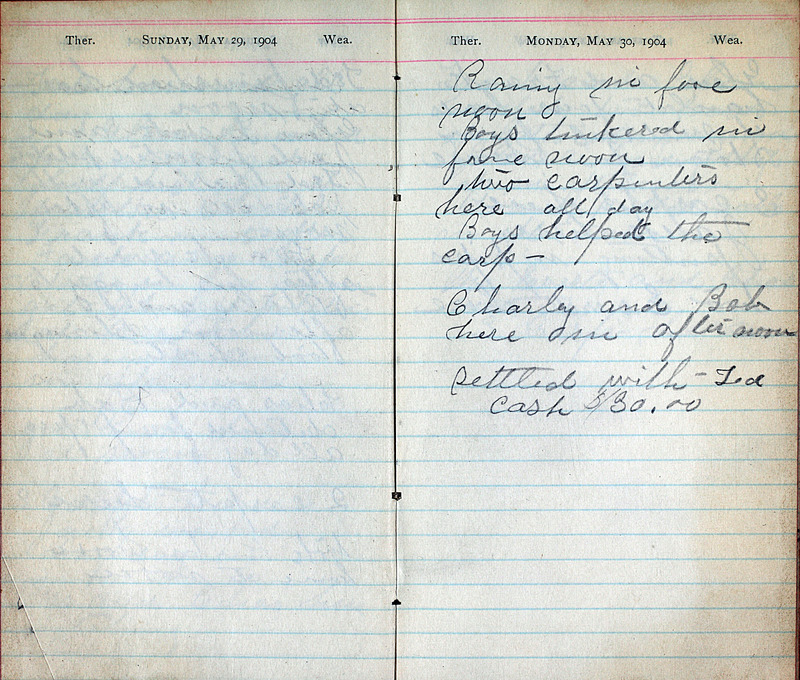 Ther. SUNDAY, MAY 29, 1904 Wea.
Ther. MONDAY, MAY 30, 1904 Wea.
Rainy in fore
noon
Boys tinkered in
fore noon
two carpenters
here all day
Boys helped the
carp -
Charley and Bob
here in afternoon
settled with Ted
cash $30.00